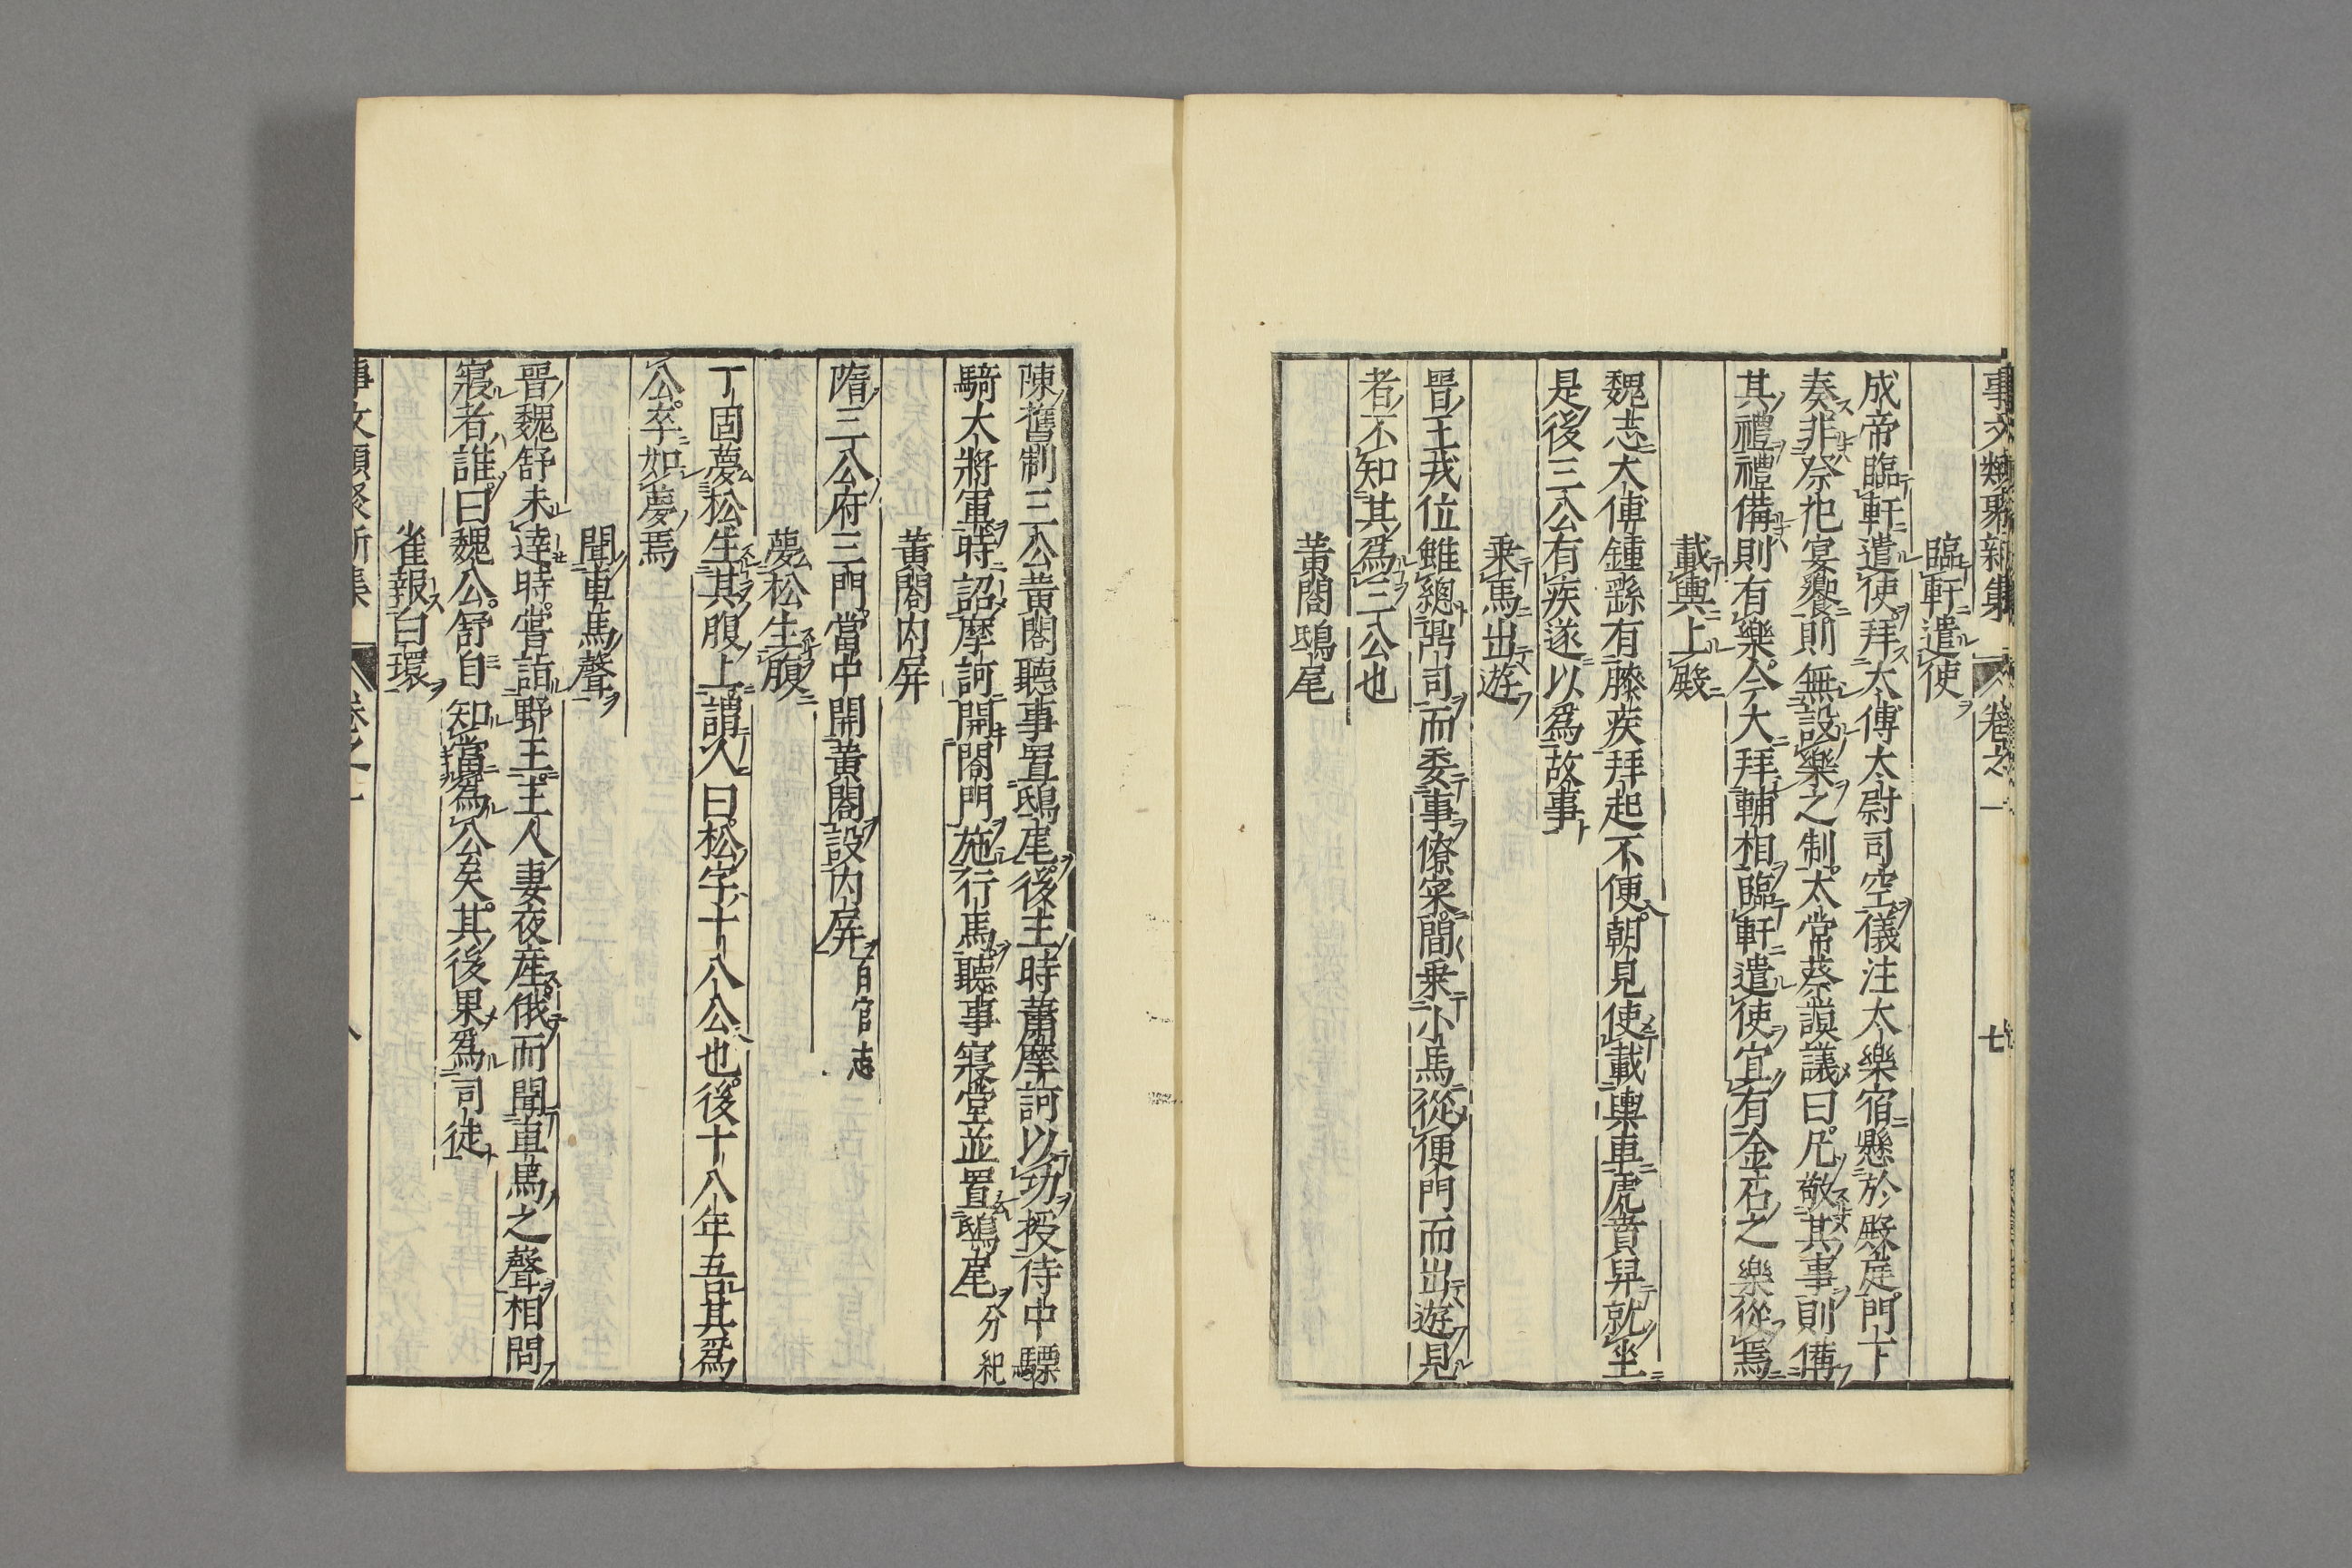 事文類聚新集 卷之一 七
臨軒遣使
成帝臨軒遣使拜太傅太尉司空儀注太樂宿懸於殿庭門下
奏非祭祀宴饗則無設樂之制太常蔡謨議曰凡敬其事則備
其禮禮備則有樂今大拜輔相臨軒遣使宜有金石之樂從焉
載輿上殿
魏志太傅鍾繇有膝疾拜起不便朝見使載輿車虎賁舁就坐
是後三公有疾遂以為故事
乗馬出遊
晉王戎位雖總鼎司而委事僚寀間乗小馬從便門而出遊見
者不知其爲三公也
黃閤鴟尾
陳舊制三公黃閤聽事置鴟尾後主時蕭摩訶以功授侍中驃
騎大將軍時詔摩訶開閤門施行馬聽事寢堂並置鴟尾 分紀
黃閤内屏
隋三公府三門當中開黃閤設内屏 百官志
夢松生腹
丁固夢松生其腹上謂人曰松字十八公也後十八年吾其爲
公卒如夢焉
聞車馬聲
晉魏舒未達時嘗詣野王主人妻夜産俄而聞車馬之聲相問
寢者誰曰魏公舒舒自知當爲公矣其後果爲司徒
雀報白環
事文類聚新集 卷之一 八